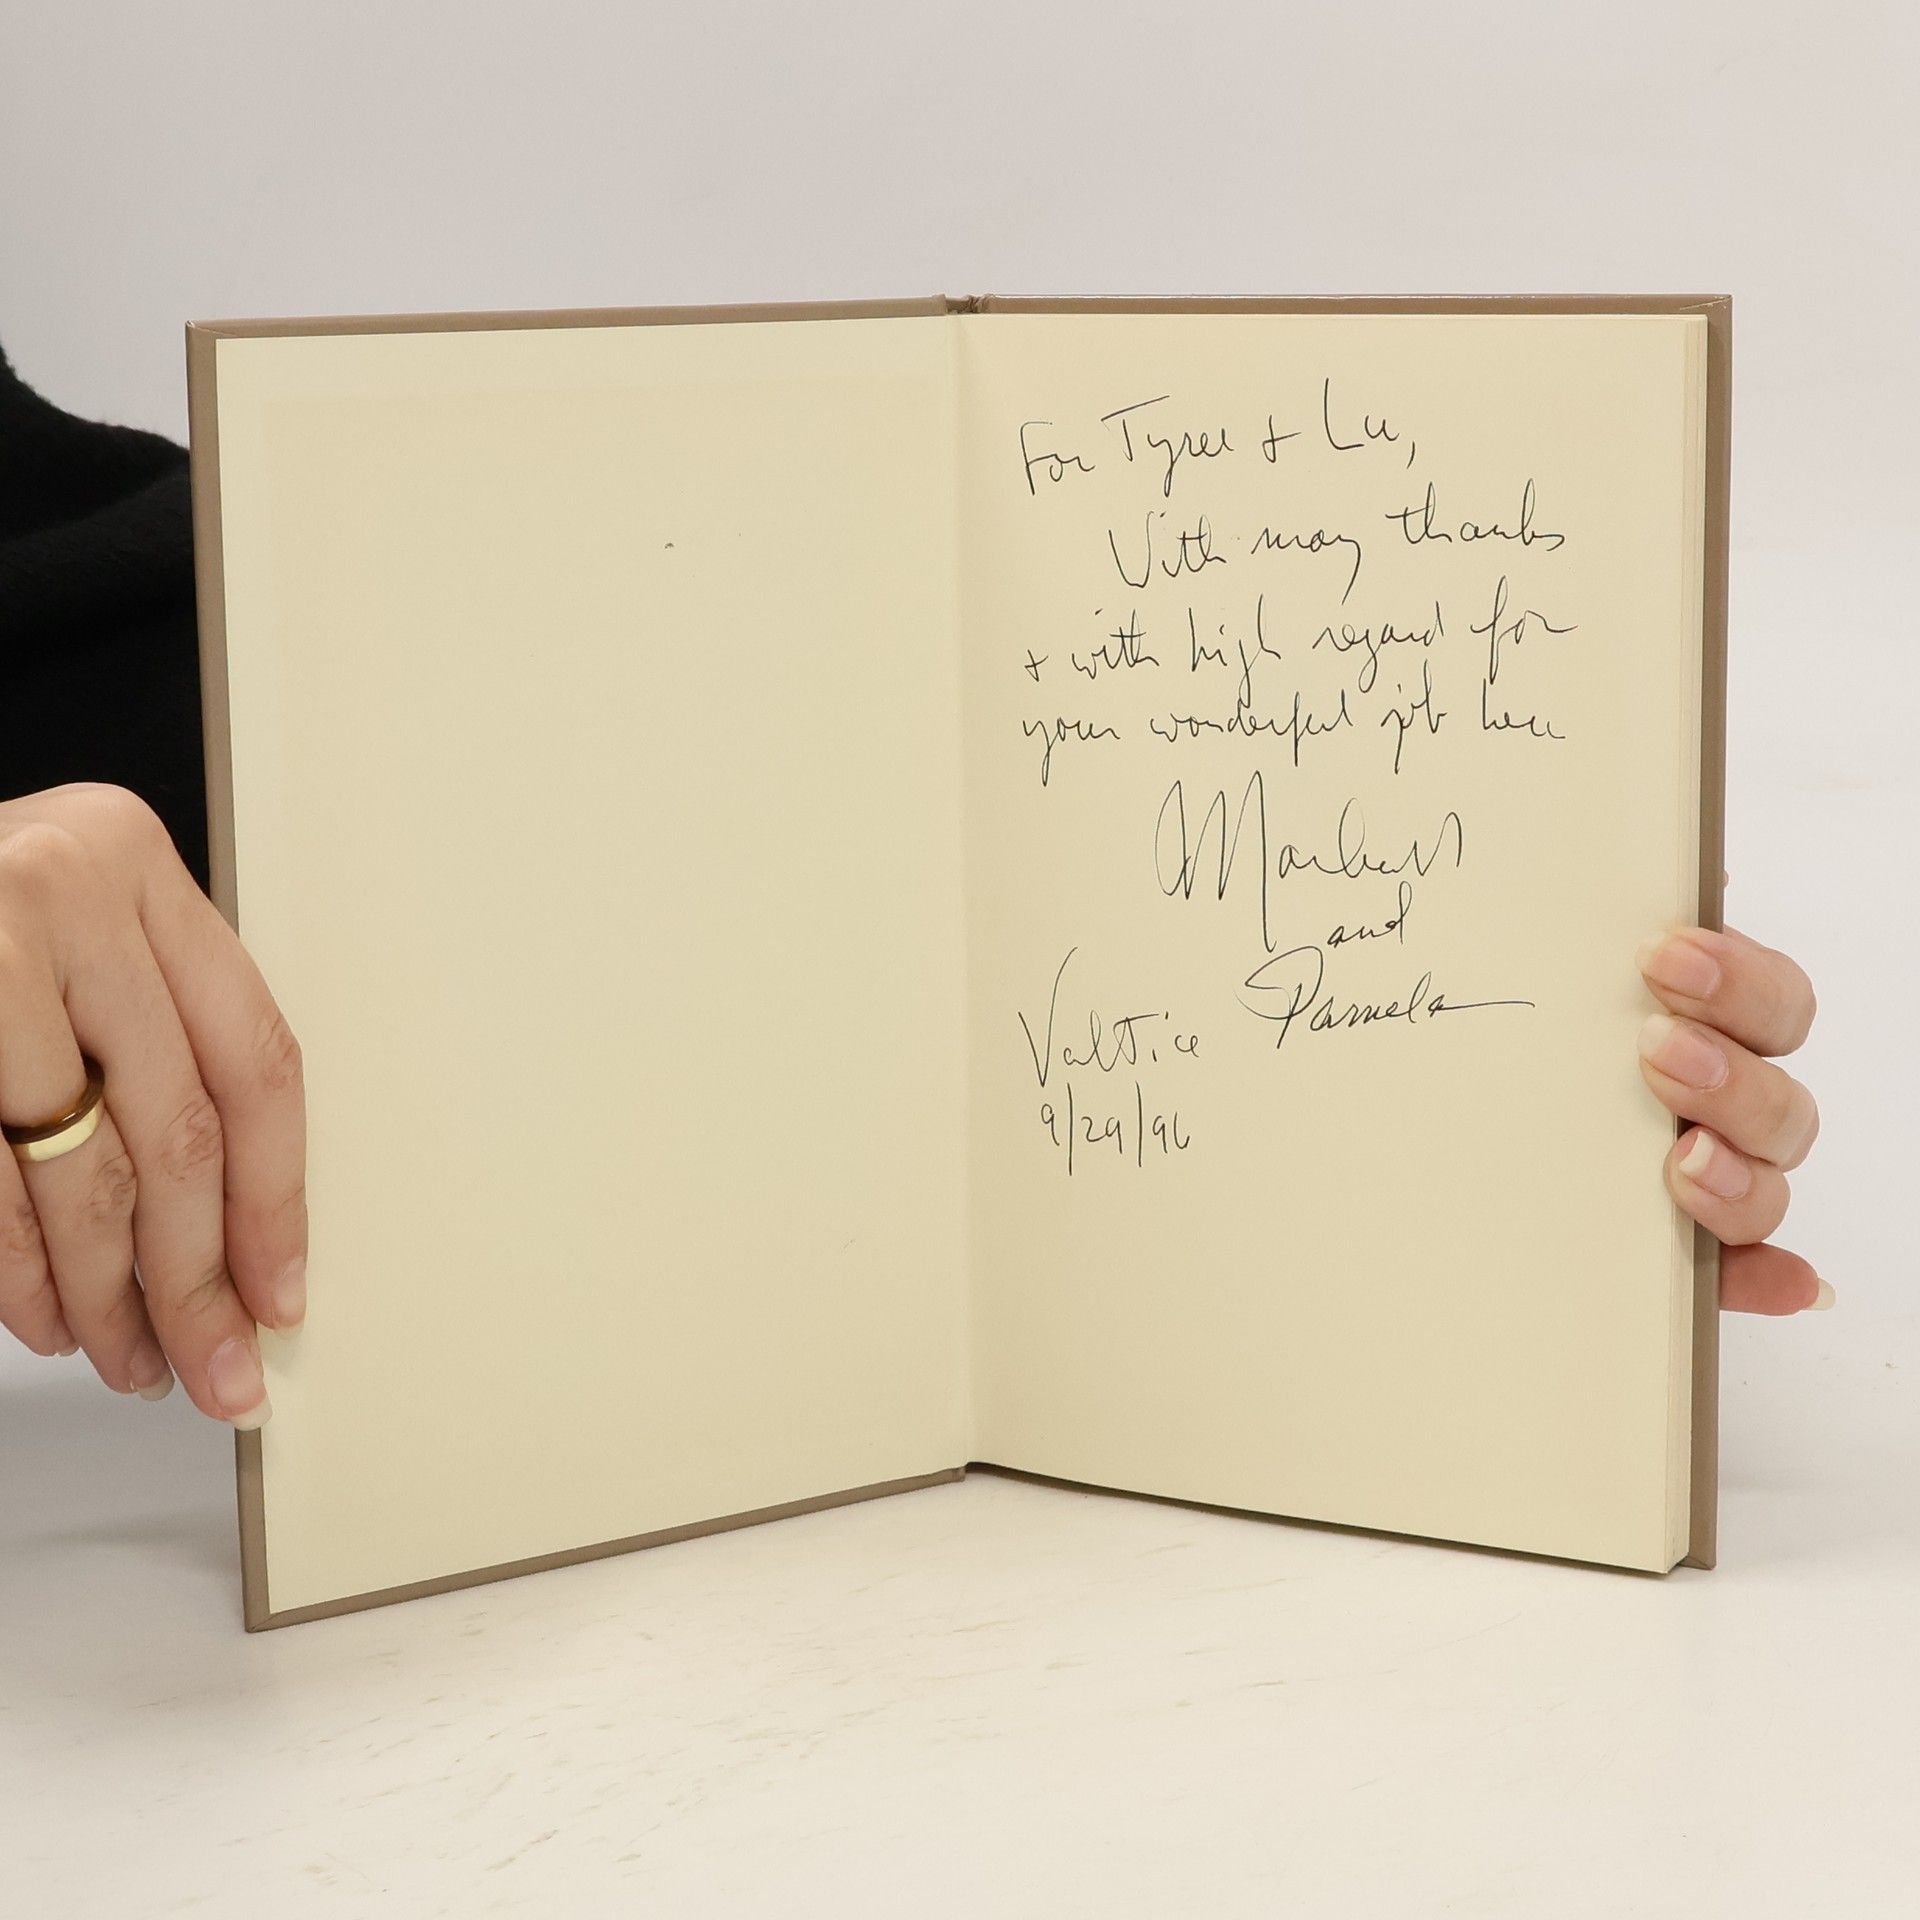 For Tyree + Lu,
With many thanks
+ with high regard for
your wonderful job here
and
Pamela
Valtice
9/29/96